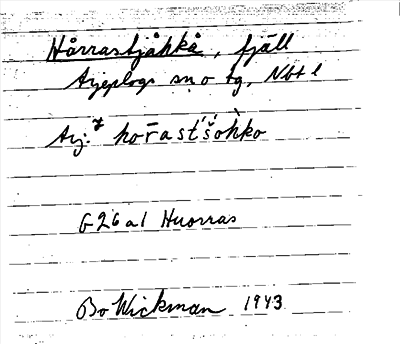 Hårrastjåkkå, fjäll
Arjeplogs sn o tg, Nbt l
Arj. * hor̄ast́śoh̀ko
G26a1 Huorras
Bo Wickman 1943